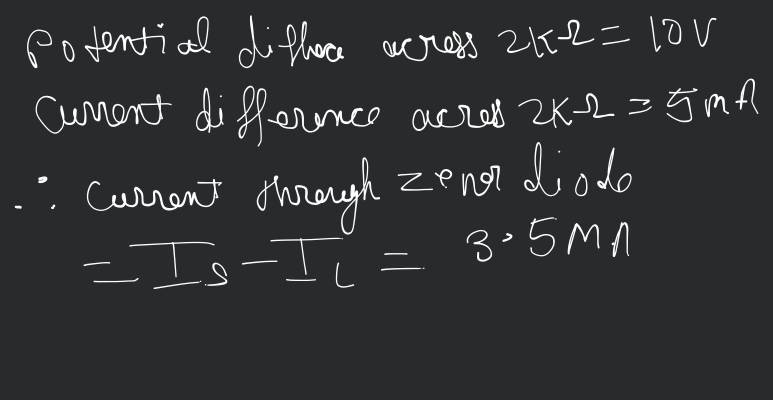 Potential diffnce across 2KΩ = 10V
Current difference acros 2KΩ = 5mA
∴ Current through zener diode
= Is - IL = 3.5MA